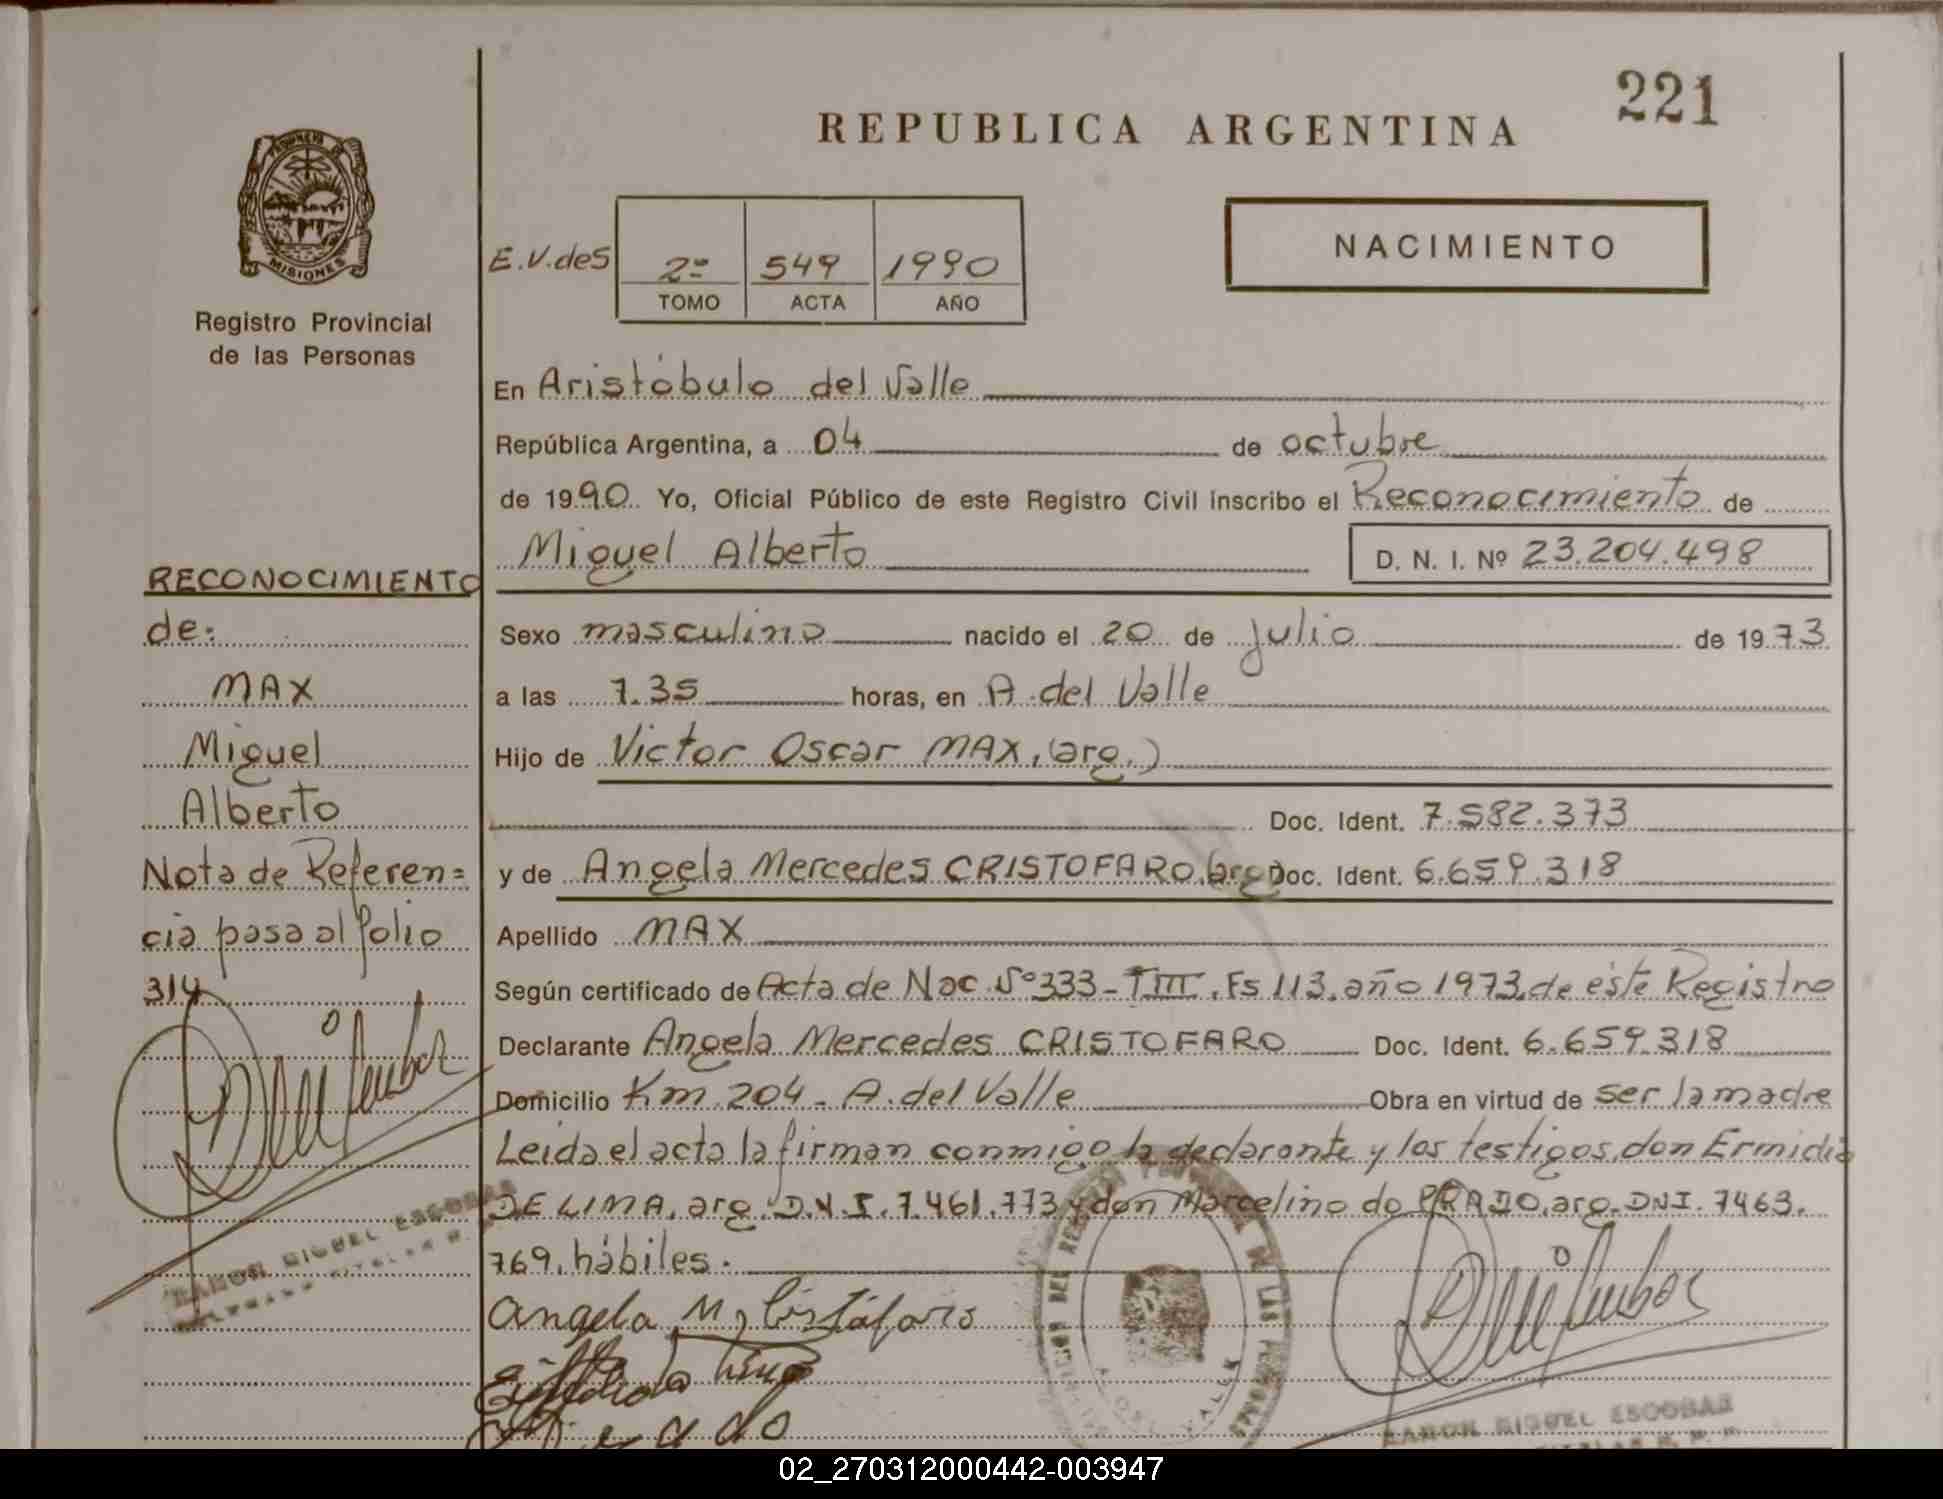 221
REPUBLICA ARGENTINA
PROVINCIA DE
MISIONES
Registro Provincial
de las Personas
E.V. des
2º 549 1990
TOMO ACTA AÑO
NACIMIENTO
En Aristóbulo del Valle
República Argentina, a 04 de octubre
de 1990. Yo, Oficial Público de este Registro Civil inscribo el Reconocimiento de
Miguel Alberto D. N. I. Nº 23.204.498
RECONOCIMIENTO
de:
MAX
Miguel
Alberto
Nota de Referen=
cia pasa al folio
314
Sexo masculino nacido el 20 de julio de 1973
a las 7.35 horas, en A. del Valle
Hijo de Victor Oscar MAX, (arg.)
Doc. Ident. 7.582.373
y de Angela Mercedes CRISTOFARO, (arg) Doc. Ident. 6.659.318
Apellido MAX
Según certificado de Acta de Nac Nº 333 - T III, Fs 113, año 1973, de éste Registro
Declarante Angela Mercedes CRISTOFARO Doc. Ident. 6.659.318
Domicilio Km 204 - A. del Valle Obra en virtud de ser la madre
Leida el acta la firman conmigo la declarante y los testigos, don Ermidio
DE LIMA, arg. D.N.I. 7.461.773 y don Marcelino do PRADO, arg. DNI. 7463.
769, hábiles.-
Angela M, Cristófaro
RAMON MIGUEL ESCOBAR
RAMON MIGUEL ESCOBAR
02_270312000442-003947